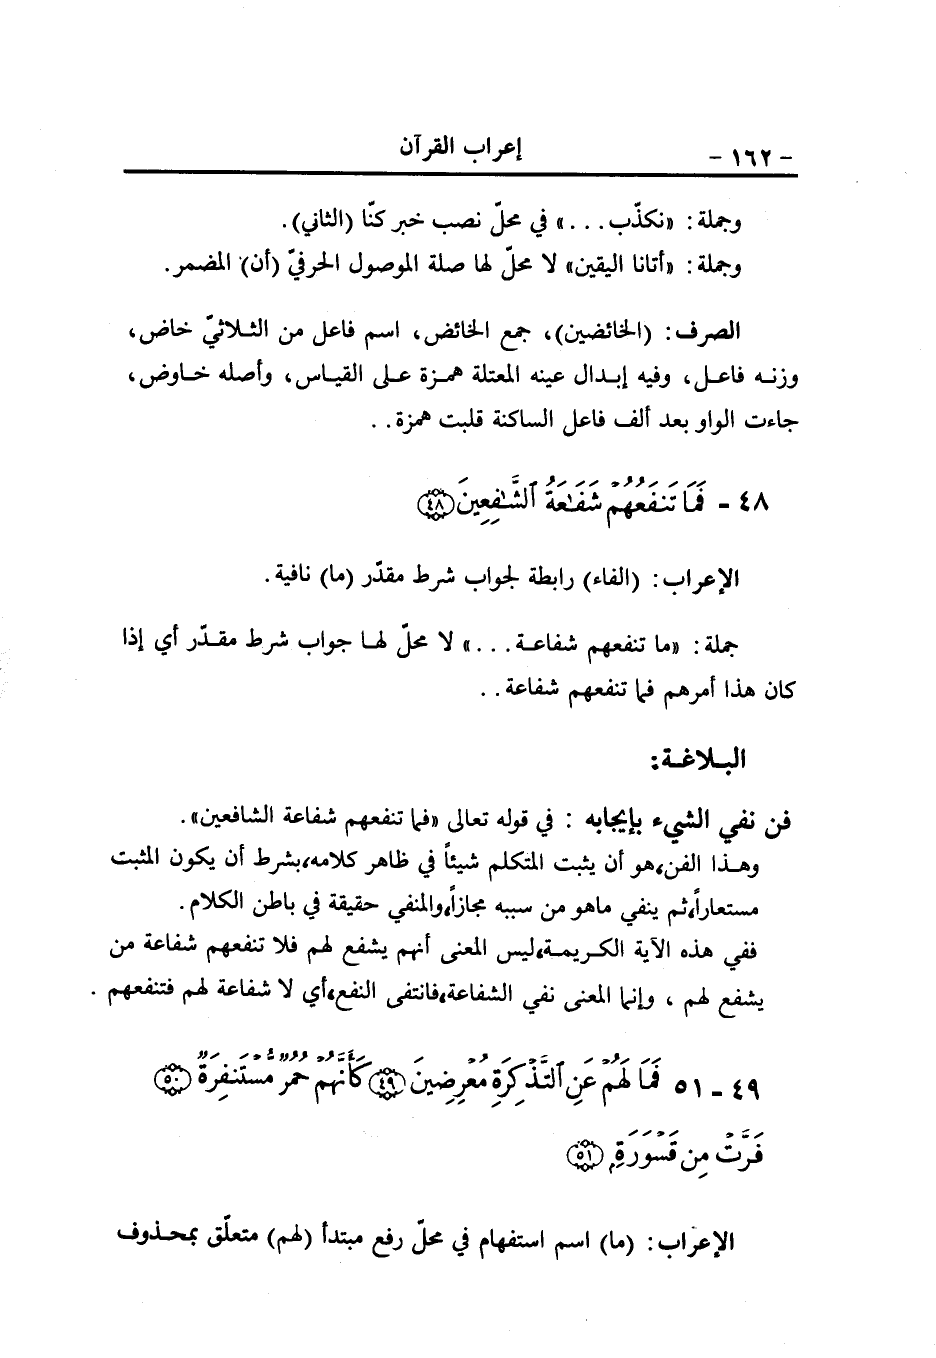 - ١٦٢ - إعراب القرآن
وجملة: «نكذّب...» في محلّ نصب خبر كنّا (الثاني).
وجملة: «أتانا اليقين» لا محلّ لها صلة الموصول الحرفيّ (أن) المضمر.
الصرف: (الخائضين)، جمع الخائض، اسم فاعل من الثلاثيّ خاض،
وزنه فاعل، وفيه إبدال عينه المعتلة همزة على القياس، وأصله خاوض،
جاءت الواو بعد ألف فاعل الساكنة قلبت همزة..
٤٨ - فَمَا تَنفَعُهُمْ شَفَٰعَةُ ٱلشَّٰفِعِينَ ﴿٤٨﴾
الإعراب: (الفاء) رابطة لجواب شرط مقدّر (ما) نافية.
جملة: «ما تنفعهم شفاعة...» لا محلّ لها جواب شرط مقدّر أي إذا
كان هذا أمرهم فما تنفعهم شفاعة..
البلاغة:
فن نفي الشيء بإيجابه : في قوله تعالى «فما تنفعهم شفاعة الشافعين».
وهذا الفن، هو أن يثبت المتكلم شيئاً في ظاهر كلامه، بشرط أن يكون المثبت
مستعاراً، ثم ينفي ماهو من سببه مجازاً، والمنفي حقيقة في باطن الكلام.
ففي هذه الآية الكريمة، ليس المعنى أنهم يشفع لهم فلا تنفعهم شفاعة من
يشفع لهم ، وإنما المعنى نفي الشفاعة، فانتفى النفع، أي لا شفاعة لهم فتنفعهم .
٤٩ - ٥١ فَمَا لَهُمْ عَنِ ٱلتَّذْكِرَةِ مُعْرِضِينَ ﴿٤٩﴾ كَأَنَّهُمْ حُمُرٌ مُّسْتَنفِرَةٌ ﴿٥٠﴾
فَرَّتْ مِن قَسْوَرَةٍۭ ﴿٥١﴾
الإعراب: (ما) اسم استفهام في محلّ رفع مبتدأ (لهم) متعلّق بمحذوف